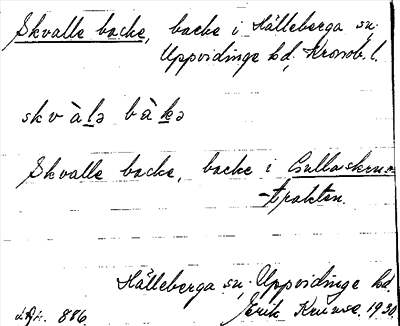 Skvalle backe, backe i Hälleberga sn.
Uppvidinge hd, Kronob. l.
skv̀àlə bàkə
Skvalle backe, backe i Gullaskruv-
-trakten.
Hälleberga sn, Uppvidinge hd.
886 Erik 1930